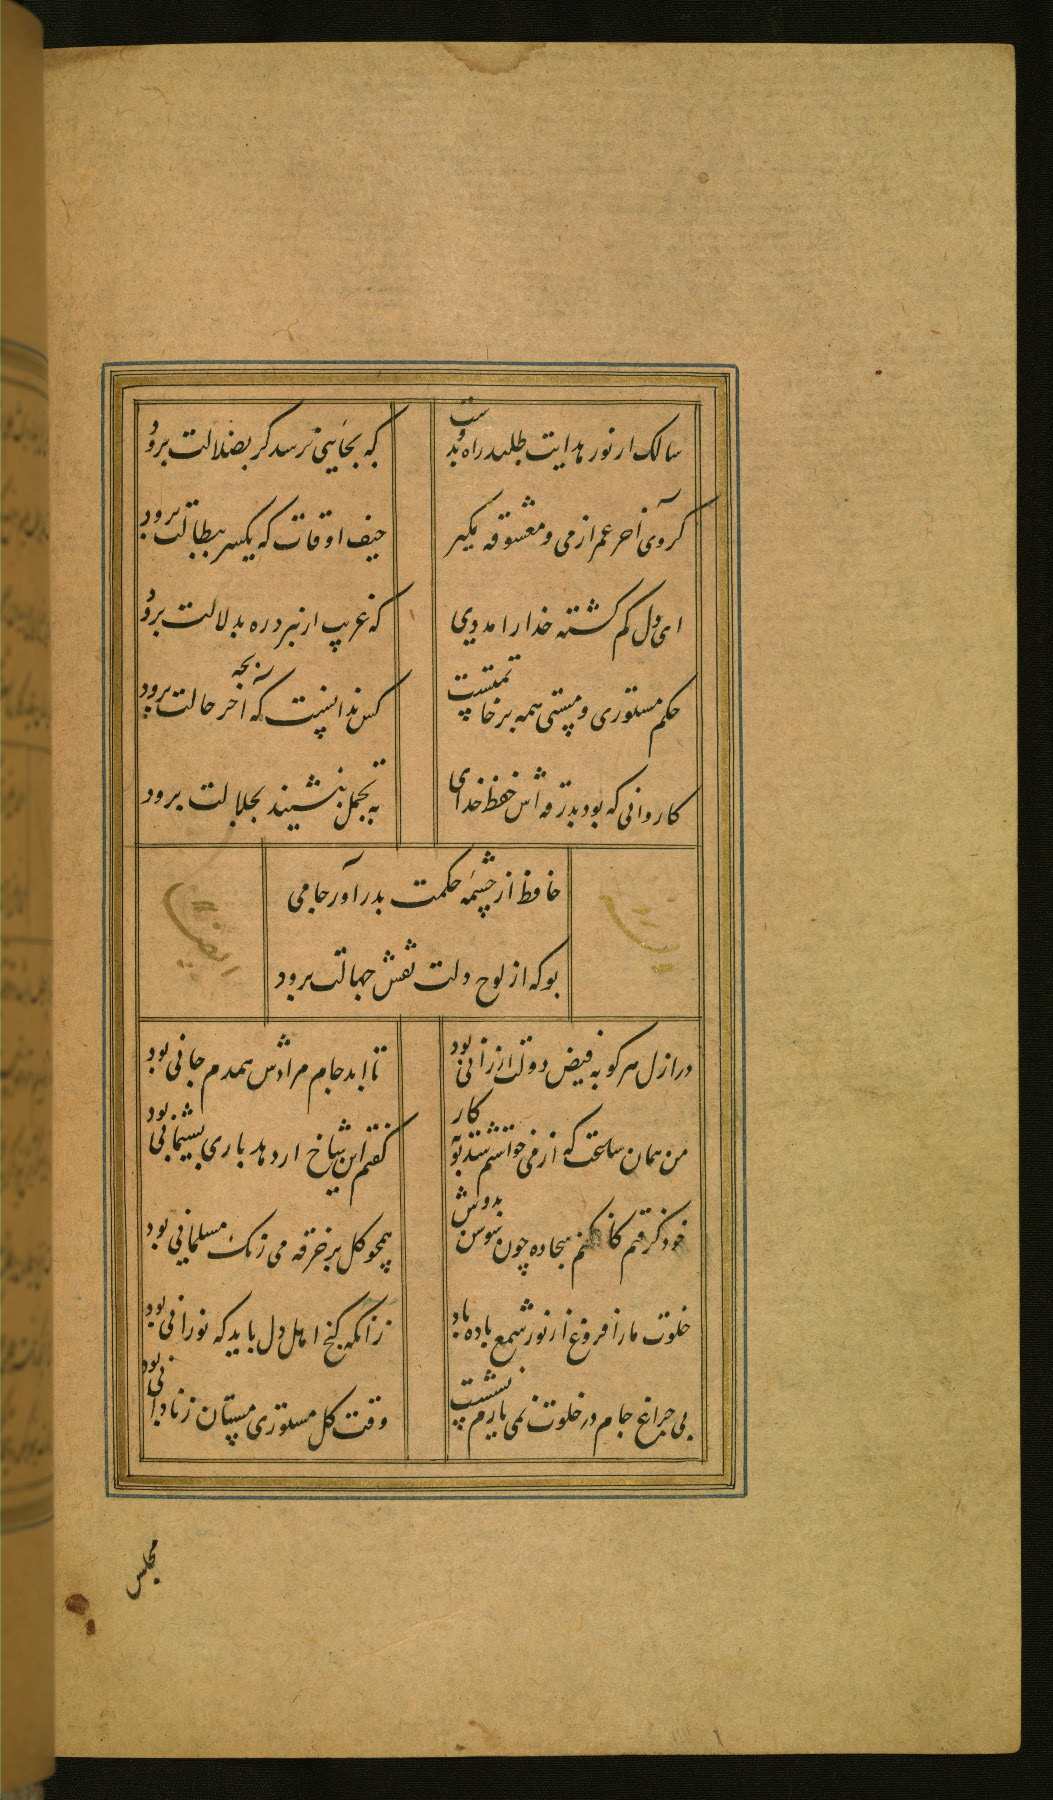 سالک از نور هدایت طلبد راه بدوست
که بجایی نرسد گر بضلالت برود
گروی آخر عمر از می و معشوقه بگیر
حیف اوقات که یکسر ببطالت برود
ای دلیل گم گشته خدا را مددی
که غریب ار نبرد ره بدلالت برود
حکم مستوری و مستی همه بر خاتمتست
کس ندانست که آخر بچه حالت برود
کاروانی که بود بدرقه اش حفظ خدای
به تجمل بنشیند بجلالت برود
حافظ از چشمه حکمت بدر آور جامی
بو که از لوح دلت نقش جهالت برود
در ازل هر کو به فیض دولت ارزانی بود
تا ابد جام مرادش همدم جانی بود
من همان ساعت که از می خواستم شد توبه کار
گفتم این شاخ ار دهد باری پشیمانی بود
خود گرفتم کافکنم سجاده چون سوسن بدوش
همچو گل بر خرقه می رنگ مسلمانی بود
خلوت ما را فروغ از نور شمع باده باد
زانکه کنج اهل دل باید که نورانی بود
بی چراغ جام در خلوت نمی یارم نشست
وقت گل مستوری مستان ز نادانی بود
مجلس